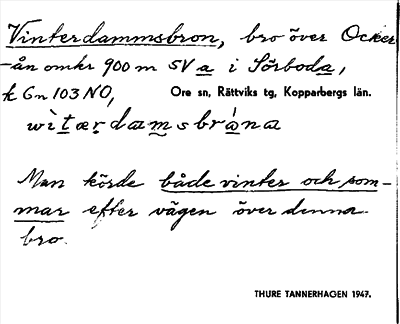 Vinterdammsbron, bro över Ocker-
-ån omkr 900 m SV a i Sörboda,
k Gn 103 NO, Ore sn, Rättviks tg, Kopparbergs län.
wìtærdamsbrána
Man körde både vinter och som-
mar efter vägen över denna
bro.
THURE TANNERHAGEN 1947.